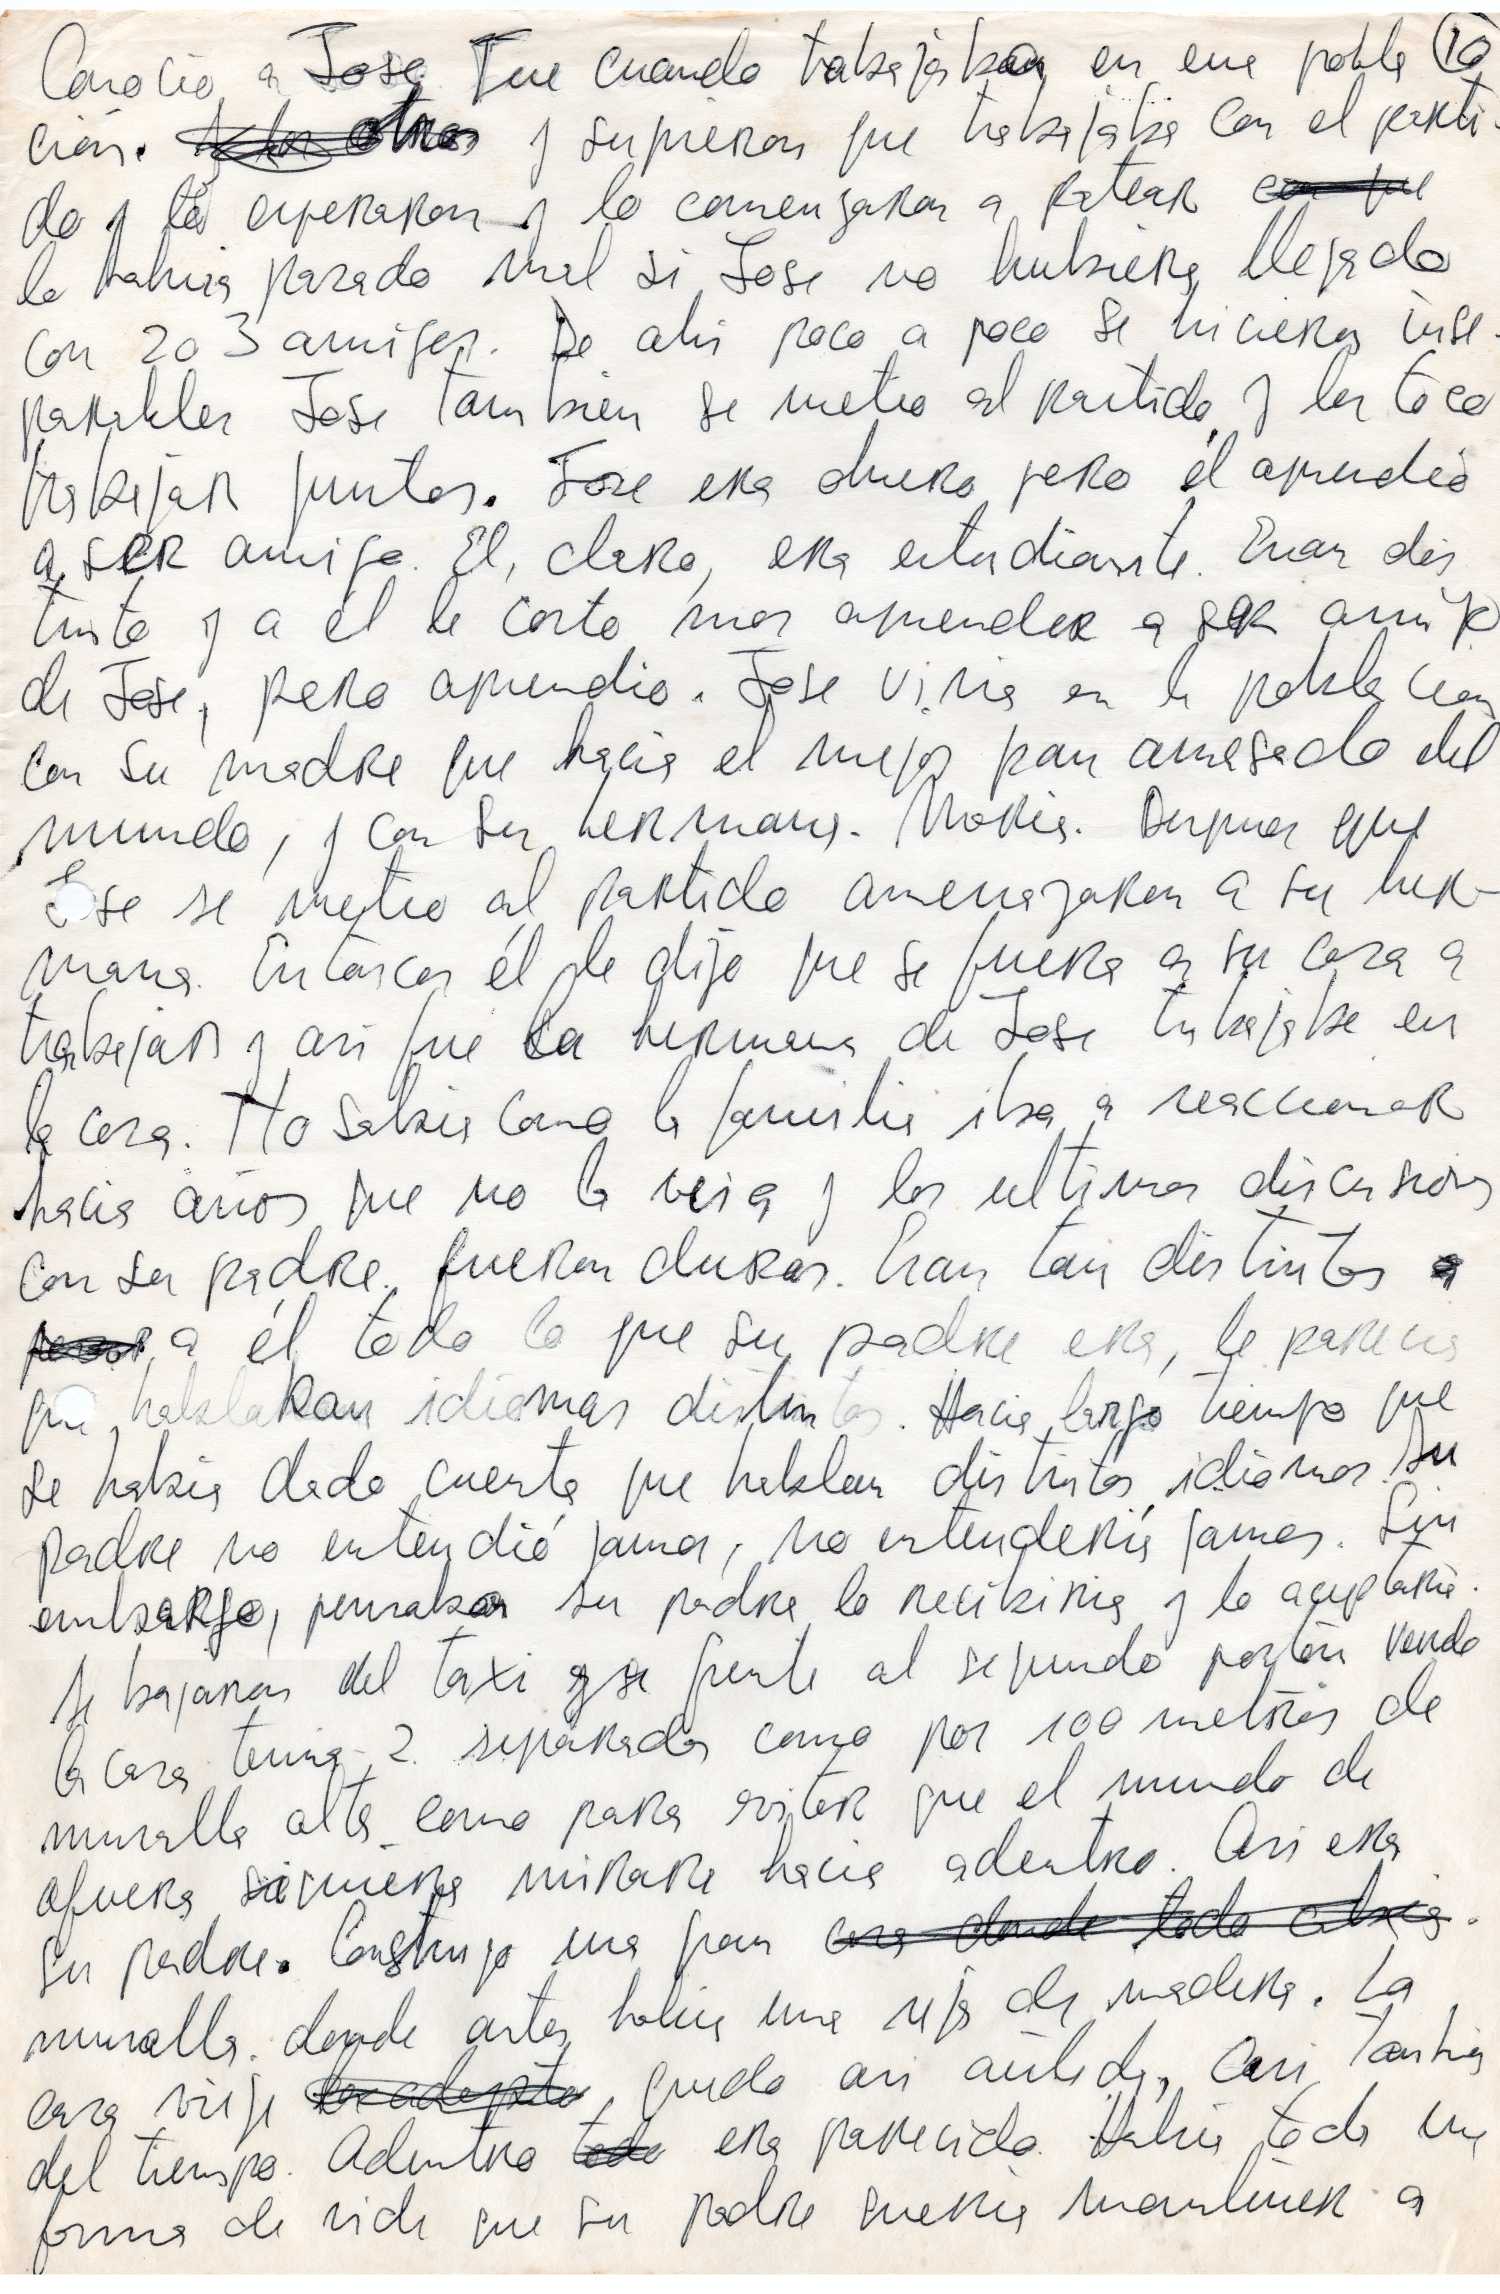 Conocio a Jose. Fue cuando trabajaban en una pobla 10
ción. y los otros y supieron que trabajaba con el parti-
do y lo esperaron y lo comenzaron a patear con que
lo habria pasado mal si Jose no hubiera llegado
con 2 o 3 amigos. De ahi poco a poco se hicieron inse-
parables Jose tambien se metio al partido, y les toco
trabajar juntos. Jose era obrero pero él aprendió
a ser amigo. El, claro, era estudiante. Eran dis
tinto y a él le costo mas aprender a ser amigo
de Jose, pero aprendio. Jose vivia en la poblacion
con su madre que hacia el mejor pan amasado del
mundo, y con su hermana. Maria. Despues que
Jose se metio al partido amenazaron a su her-
mana. Entonces él le dijo que se fuera a su casa a
trabajar y asi fue la hermana de Jose trabajaba en
la casa. No sabia como la familia iba a reaccionar
hacia años que no la veia y las ultimas discusiones
con su padre, fueron duras. Eran tan distintos a
a él todo lo que su padre era, le parecia
que hablaran idiomas distintos. Hacia largo tiempo que
se habia dado cuenta que hablan distintos idiomas. Su
padre no entendió jamas, no entenderia jamas. Sin
embargo, pensaba su padre lo recibiria y lo aceptaria.
Se bajaron del taxi frente al segundo portón verde
la casa tenia 2 separados como por 100 metros de
muralla alta como para evitar que el mundo de
afuera siquiera mirara hacia adentro. Asi era
su padre. Construyo una gran casa donde todo cabia.
muralla donde antes habia una reja de madera. La
casa vieja los adapto, quedo asi aislada, Casi
del tiempo. Adentro todo era parecido. Habia toda una
forma de vida que su padre queria mantener a